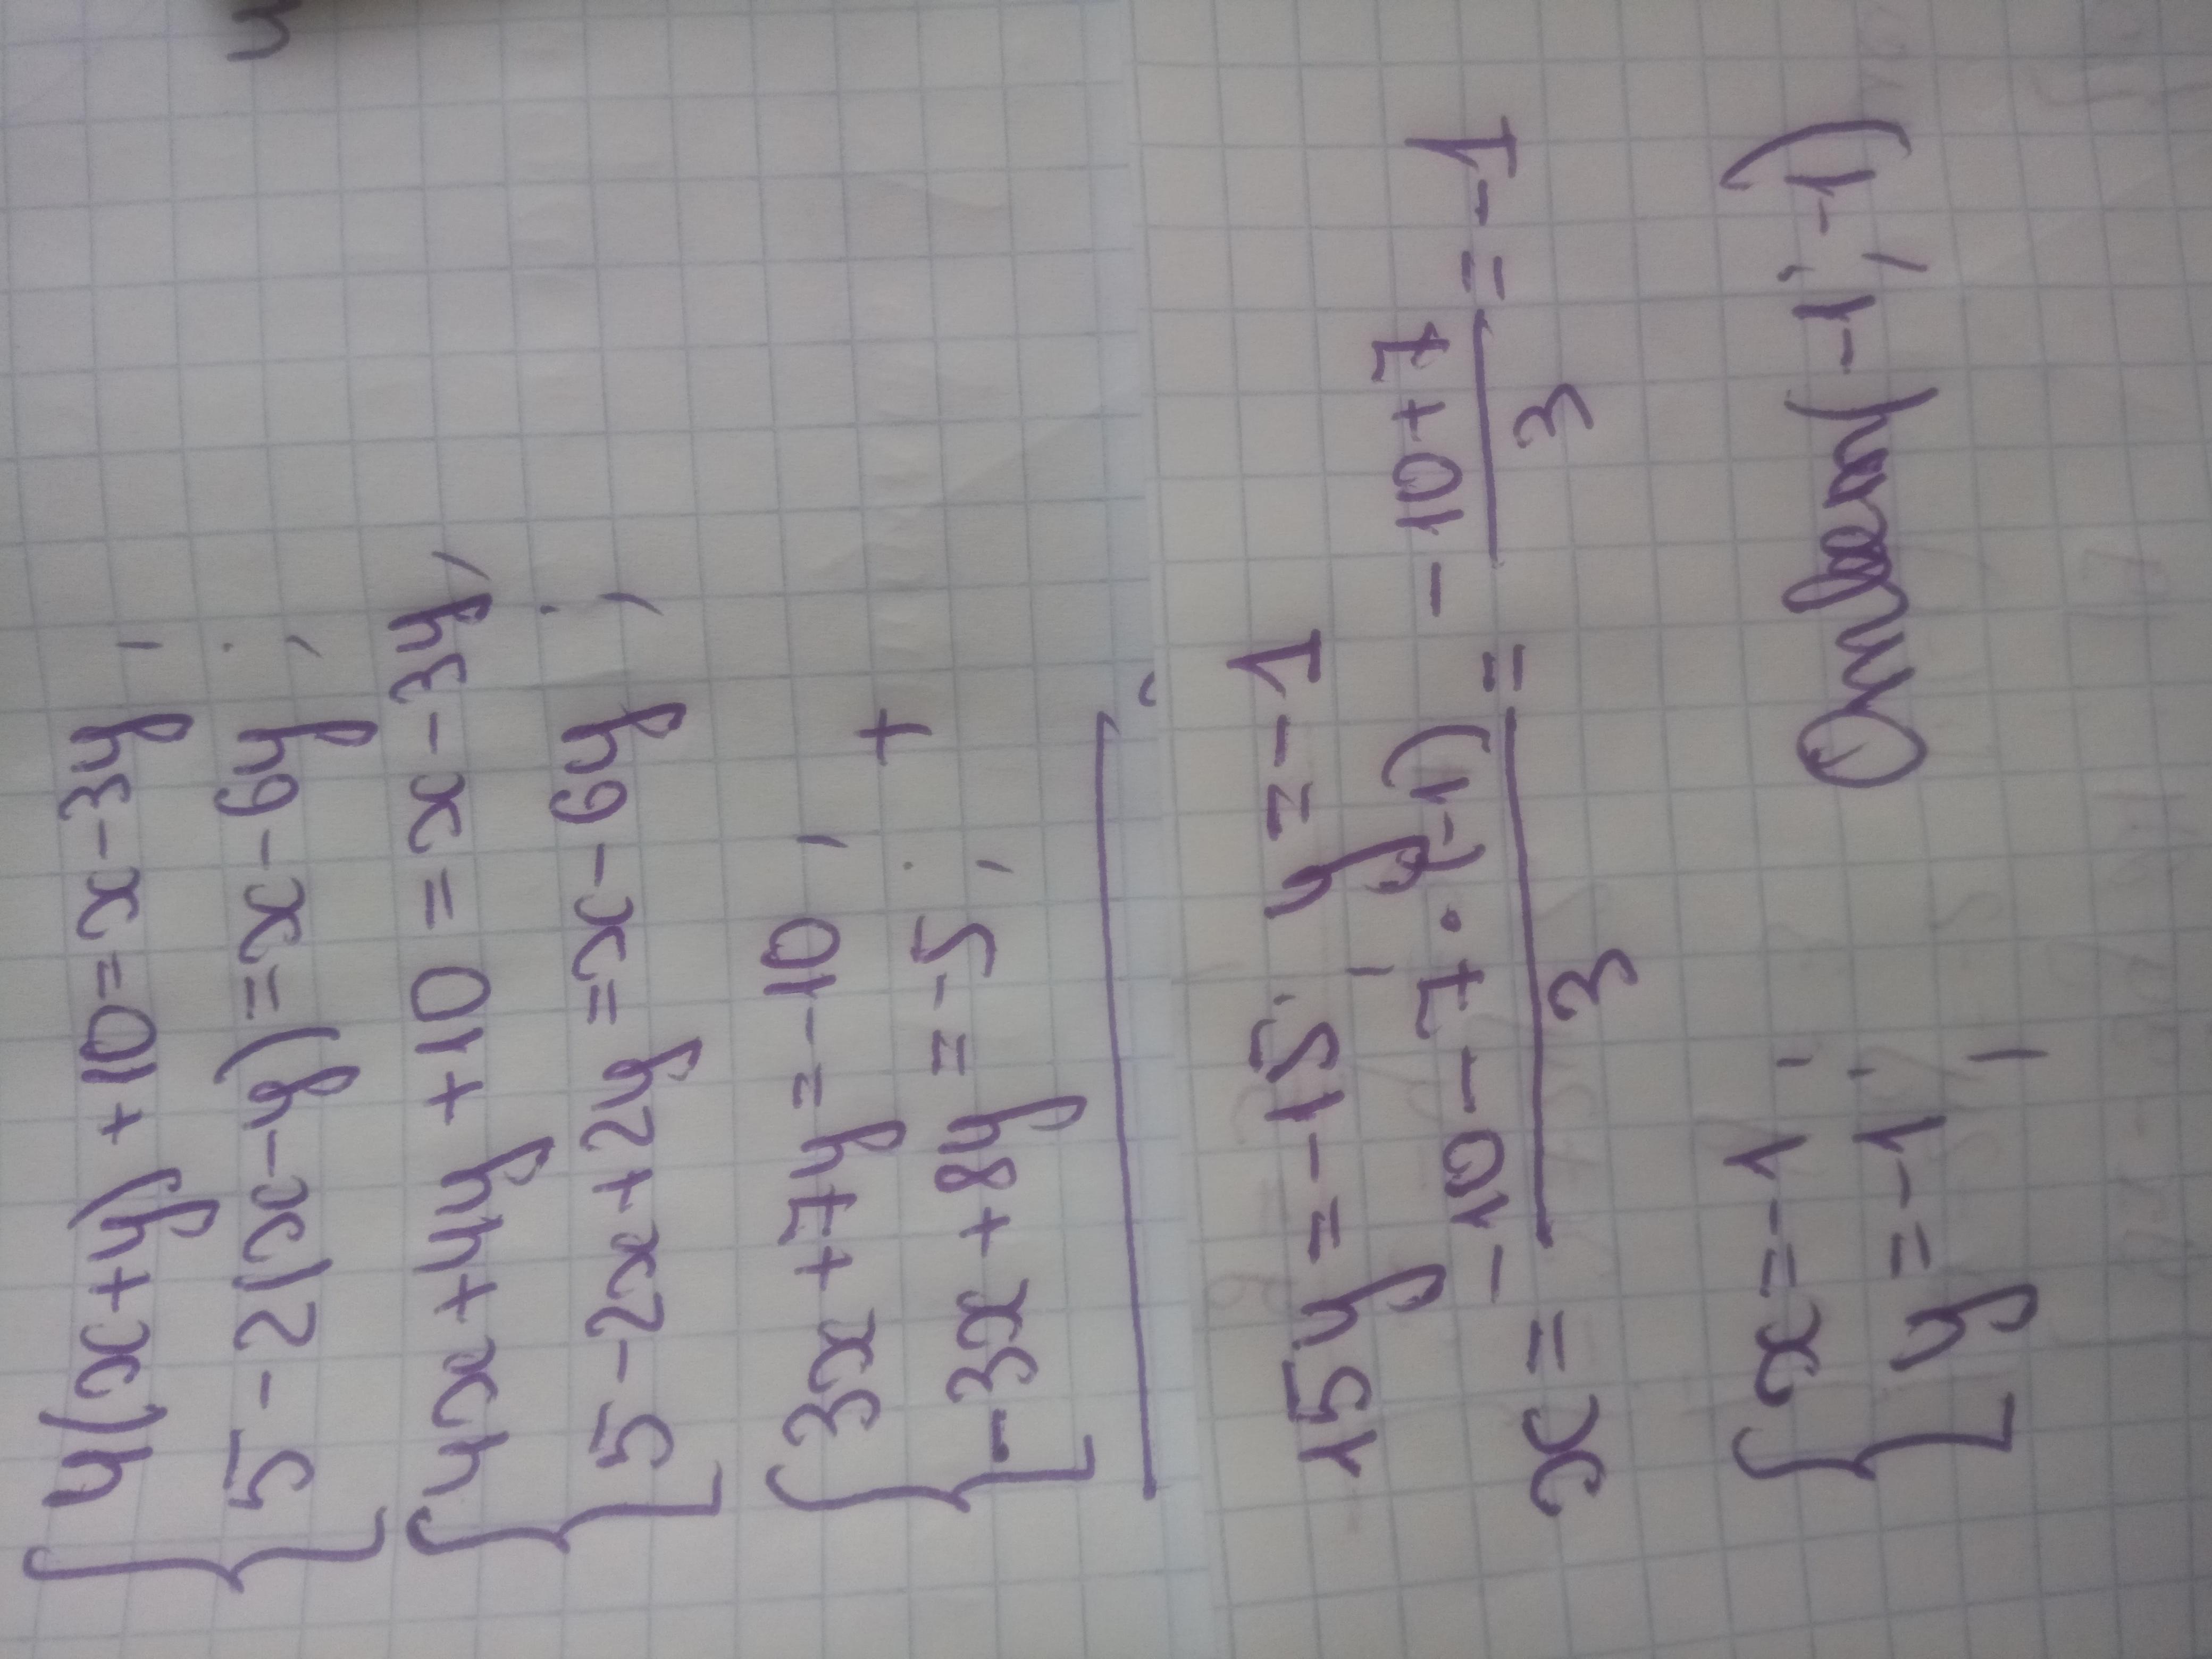 4(x+y)+10=x-3y,
5-2(x-y)=x-6y;
4x+4y+10=x-3y,
5-2x+2y=x-6y;
3x+7y=-10, +
-3x+8y=-5;
15y=-15; y=-1
x= -10-7·(-1) / 3 = -10+7 / 3 = -1
x=-1,
y=-1;
Ответ(-1; -1)